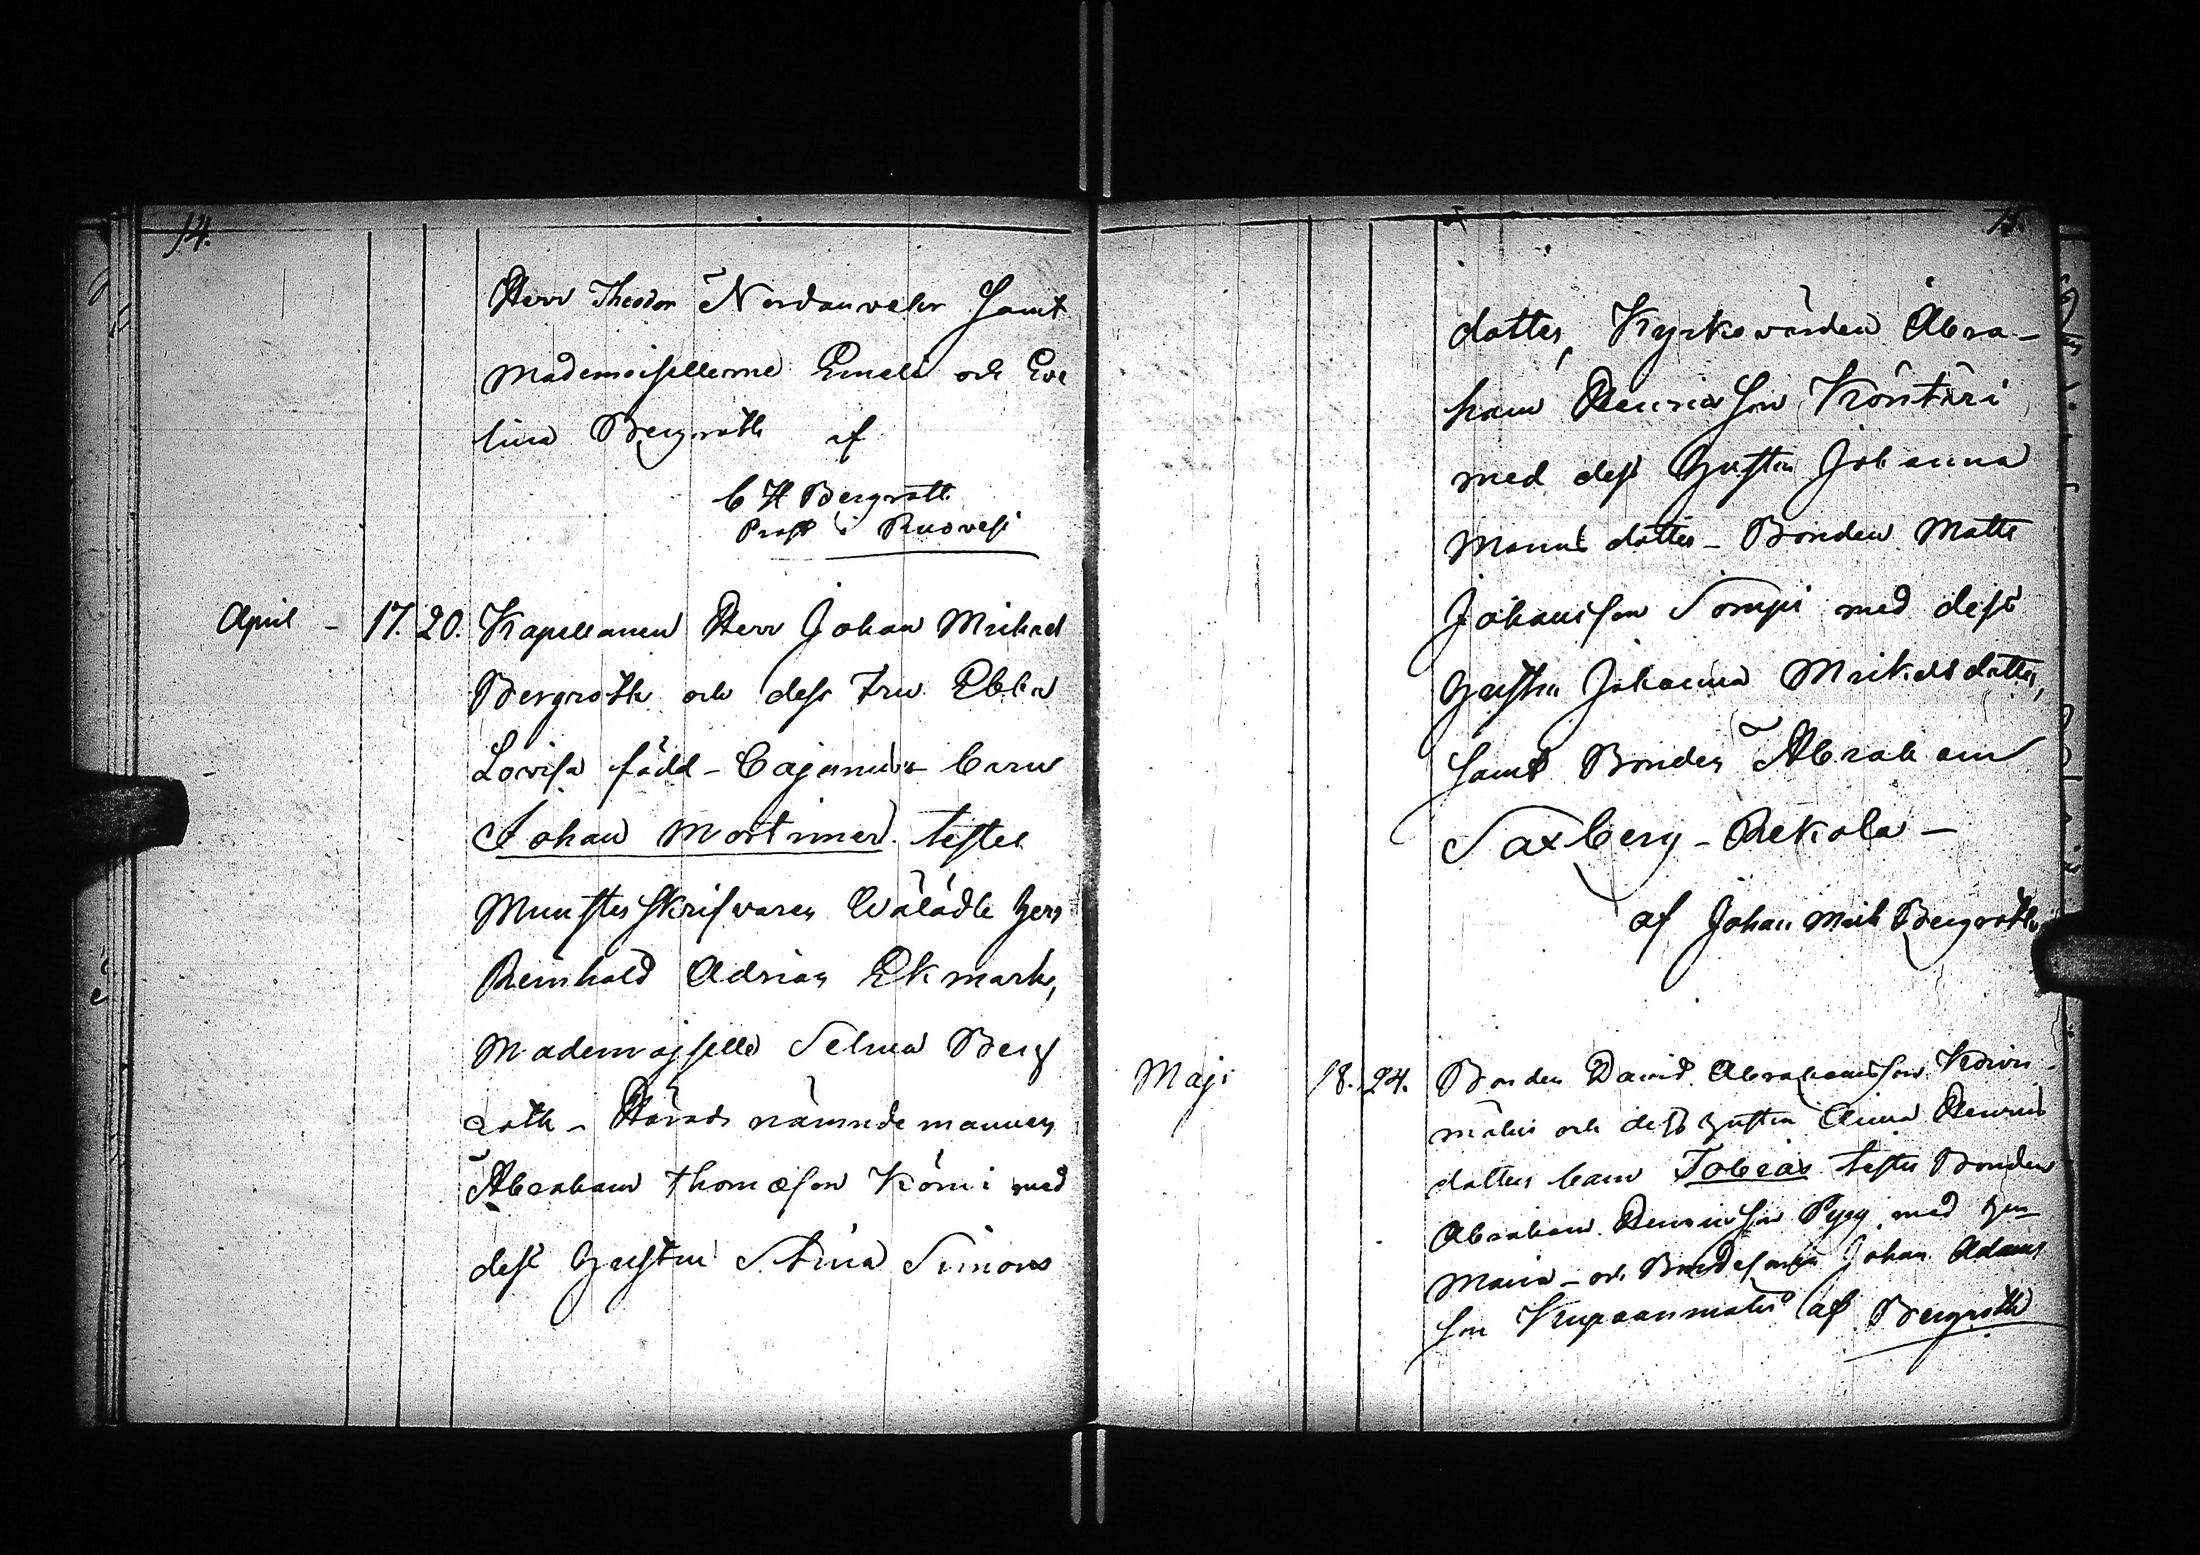 14.
Herr Theodor Nordanwaler Samt
Mademoisellerne Emelie och Eve
lina Bergroth af
C H Bergroth
Prost i Ruovesi
April - 17. 20. Kapellanen Herr Johan Mickael
Bergroth och dess Fru Ebba
Lovisa född - Cajanders barn
Johan Mortimer. testes
Munsterskrifvaren Wälädle Herr
Reinhold Adrian Ekmark,
Mademoiselle Selma Berg
roth - Härads nämndemannen
Abraham Thomæson Kömi med
dess Hustru Stina Simons
15.
dotter, Kyrkovärden Abra-
ham Henricsson Köntäri
med dess Hustru Johanna
Manusdotter - Bonden Matts
Johansson Sompi med dess
Hustru Johanna Mickelsdotter,
samt Bonden Abraham
Saxberg - Rekola -
af Johan Mich Bergroth
Maji 18. 24. Bonden David Abrahamsson
och dess hustru Anna Henrics
dotters barn Tobias testes Bonden
Abraham Henricsson Pyy med hu
Maria - och Bondesonen Johan Adams
son af Bergroth